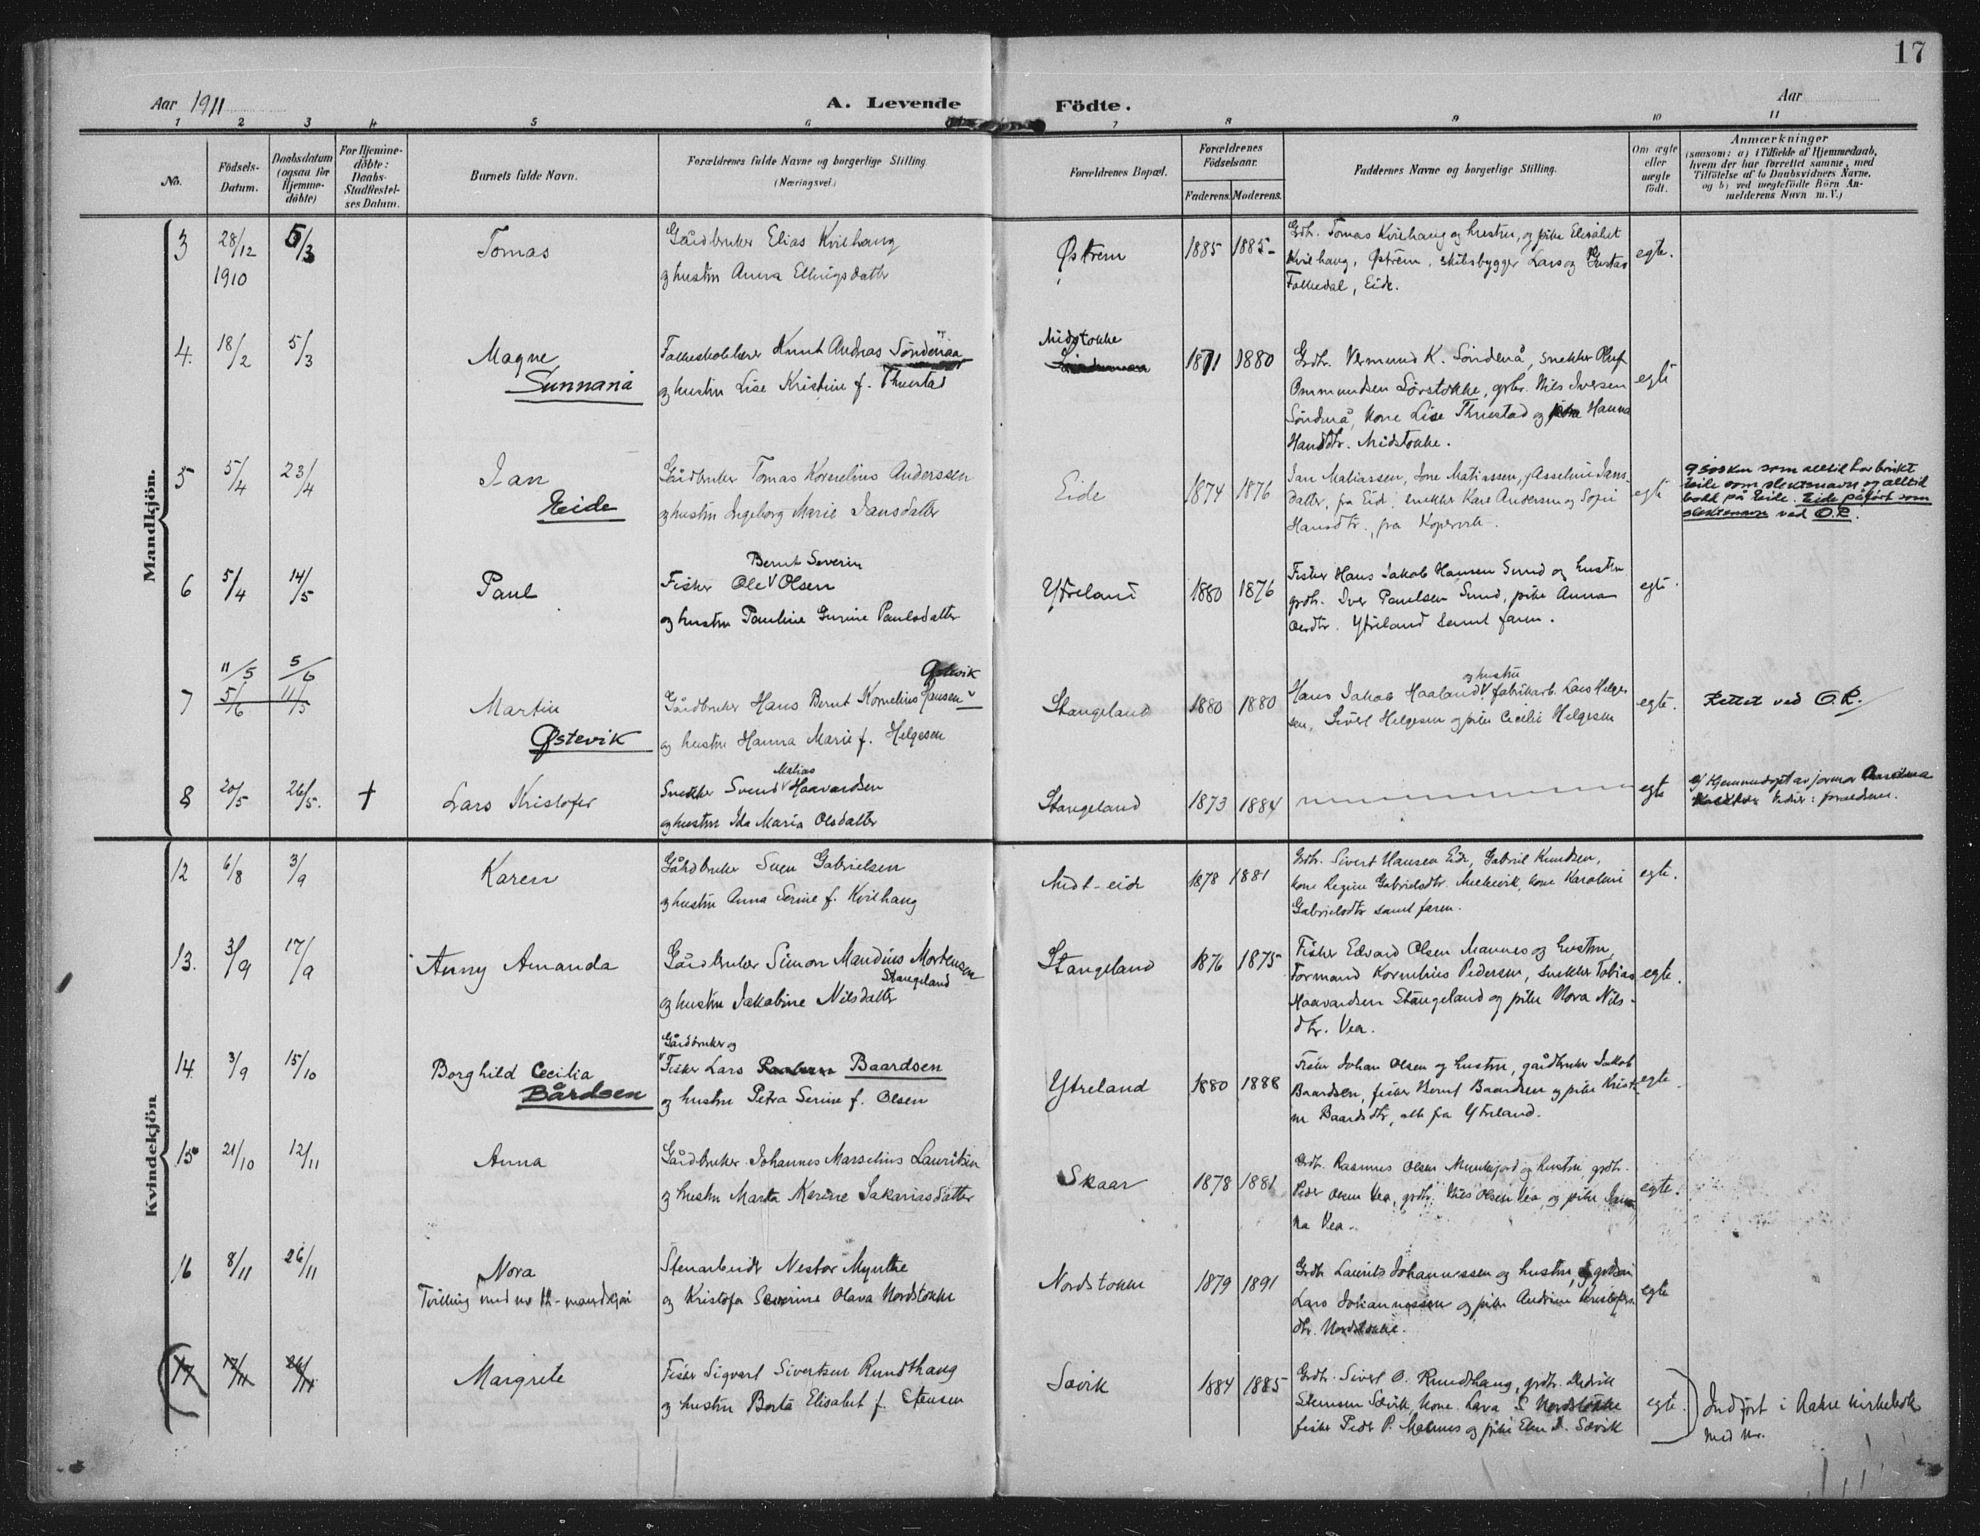 17
Aar 1911
A. Levende Födte.
Aar
1 2 3 4 5 6 7 8 9 10 11
No.
Födsels-
Datum.
Daabsdatum
(ogsaa for
Hjemme-
döbte)
For Hjemme-
döbte:
Daabs-
Stadfestel-
ses Datum.
Barnets fulde Navn.
Forældrenes fulde Navne og borgerlige Stilling
(Næringsvei.)
Forældrenes Bopæl.
Forældrenes
Födselsaar.
Faderens. Moderens.
Faddernes Navne og borgerlige Stilling.
Om ægte
eller
uægte
födt.
Anmærkninger
(saasom: a) i Tilfælde af Hjemmedaab,
hvem der har forrettet samme, med
Tilföielse af to Daabsvidners Navne,
og b) ved uægtefödte Börn An-
melderens Navn m. V.)
Mandkjön.
3 28/12 1910 5/3
Tomas
Gårdbruker Elias Kvilhaug
og hustru Anna Ellingsdatter
Østrem
1885 1885
Grdbr. Tomas Kvilhaug og hustru, og pike Elisabet
Kvilhaug, Østrem, skibsbygger Lars og Gustav
Falkedal, Eide.
egte.
4. 18/2 5/3
Magne
Sunnanå
Folkeskolelærer Knut Andreas Söndenaa
og hustru Lise Kristine f. Thuestad
Midstokke
1871 1880
Grdbr. Vermund K. Söndenå, snekker Oluf
Ommundsen Sörstokke, grbr. Nils Iversen
Söndenå, kone Lise Thuestad og Hanna
Hansdtr. Midstokke.
egte
5 5/4 23/4
Jan
Eide
Gårdbruker Tomas Kornelius Anderssen
og hustru Ingeborg Marie Jansdatter
Eide
1874 1876
Jan Matiassen, Jone Matiassen, Asseline Jans-
datter, fra Eide, snekker Kare Andersen og Sofie
Hansdtr., fra Kopervik.
egte
som alltid har brukt
Eide som slektsnavn og alltid
bodd på Eide. Eide påført som
slektsnavn ved O.R.
6 5/4 14/5
Paul
Bernt Severin
Fisker Ole V Olsen
og hustru Pauline Gurine Paulsdatter
Ytreland
1880 1876
Fisker Hans Jakob Hansen Sund og hustru
grdbr. Iver Paulsen Sund, pike Anna
Ytreland samt faren.
egte
7 11/5 5/6
5/6 11/5
Martin
Østevik
Østevik
Gårdbruker Hans Bernt Kornelius Jansen V
og hustru Hanna Marie f. Helgesen
Stangeland
1880 1880
og hustru
Hans Jakob Haaland V fabrikarb. Lars Helge-
sen, Sivert Helgesen og pike Cecilie Helgesen
egte.
Rettet ved O.R.
8 20/5 26/5. +
Lars Kristofer
Matias
Snekker Svend V Haavardsen
og hustru Ida Maria Olsdatter
Stangeland
1873 1884
egte
Hjemmedöpt av jormor
: forældrene.
Kvindekjön
12 6/8 3/9
Karen
Gårdbruker Sven Gabrielsen
og hustru Anna Serine f. Kvilhaug
Midt-eide
1878 1881
Grdbr. Sivert Hansen Eide, Gabriel Knudsen,
kone Regine Gabrielsdtr. Mekevik, kone Karoline
Gabrielsdtr samt faren.
egte.
13. 3/9 17/9
Anny Amanda
Gårdbruker Simon Mandius Mortensen
Stangeland
og hustru Jakobine Nilsdatter
Stangeland
1876 1875
Fisker Edvard Olsen Mannes og hustru,
Formand Kornelius Pedersen, snekker Tobias
Haavardsen Stangeland og pike Nora Nils-
dtr. Vea.
egte.
14. 3/9 15/10
Borghild Cecilia
Bårdsen
Gårdbruker og
V Fisker Lars Baardsen
og hustru Petra Serine f. Olsen
Ytreland
1880 1888
Fisker Johan Olsen og hustru, gårdbruker Jakob
Baardsen, fisker Bernt Baardsen og pike Krist-
ine Baardsdtr, alle fra Ytreland.
egte
15 21/10 12/11
Anna
Gårdbruker Johannes Marselius Lauritsen
og hustru Marta Karine Sakariasdatter
Skaar
1878 1881
Grdbr. Rasmus Olsen Munkejord og hustru, grdbr.
Peder Olsen Vea, grdbr. Nils Olsen Vea, og pike
na Vea.
egte.
16 8/11 26/11
Nora
Tvilling med nr 12-mandkjön
Stenarbeider Nestor Myrthe
og Kristofa Severine Olava Nordstokke
Nordstokke
1879 1891
Grdbr. Laurits Johannessen og hustru,
Lars Johannessen og pike Andrine Kristofers-
dtr. Nordstokke.
egte
17 17/11 26/11
Margrete
Fisker Sigvart Sivertsen Rundthaug
og hustru Berta Elisabet f. Stensen
Sævik
1884 1885
Grdbr. Sivert O. Rundthaug, grdbr. Hedvik
Stensen Sævik, kone Lava S. Nordstokke
fisker Peder P. Mannes og pike Elen J. Sævik
egte.
Indført i Aakre kirkebok
med nr.